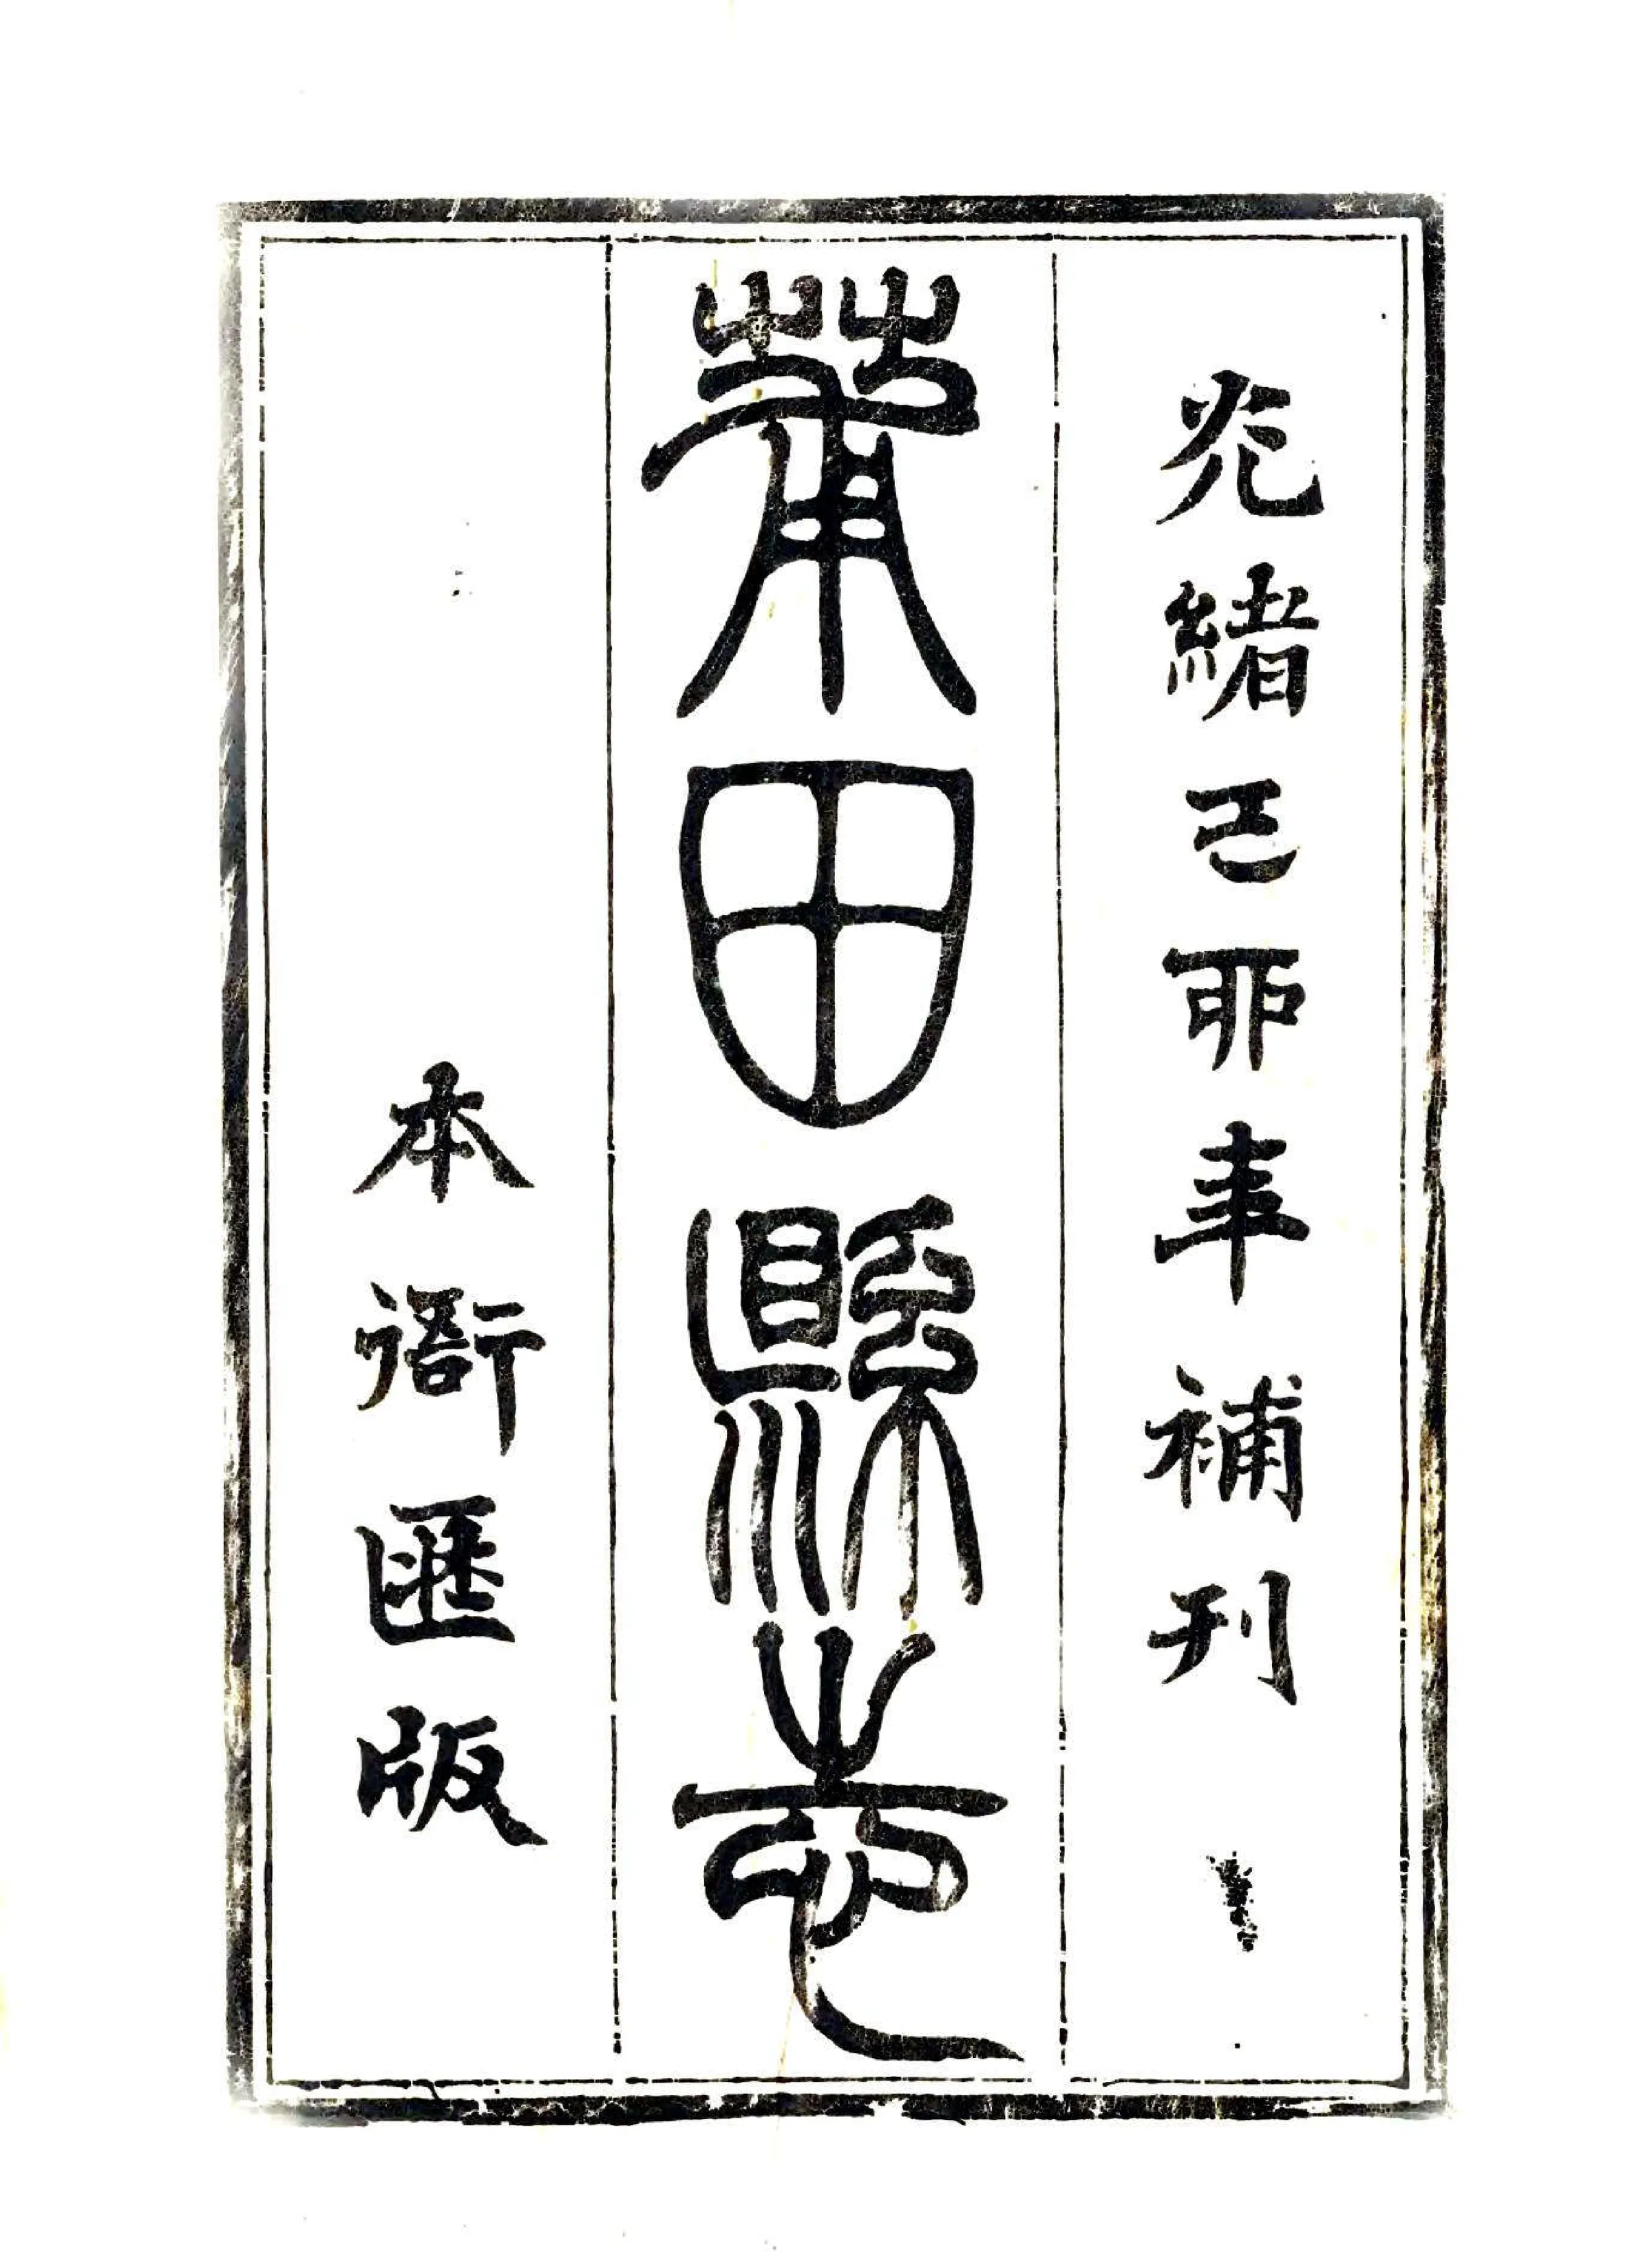 光緒己卯年補刊
莆田縣志
本衙匯版